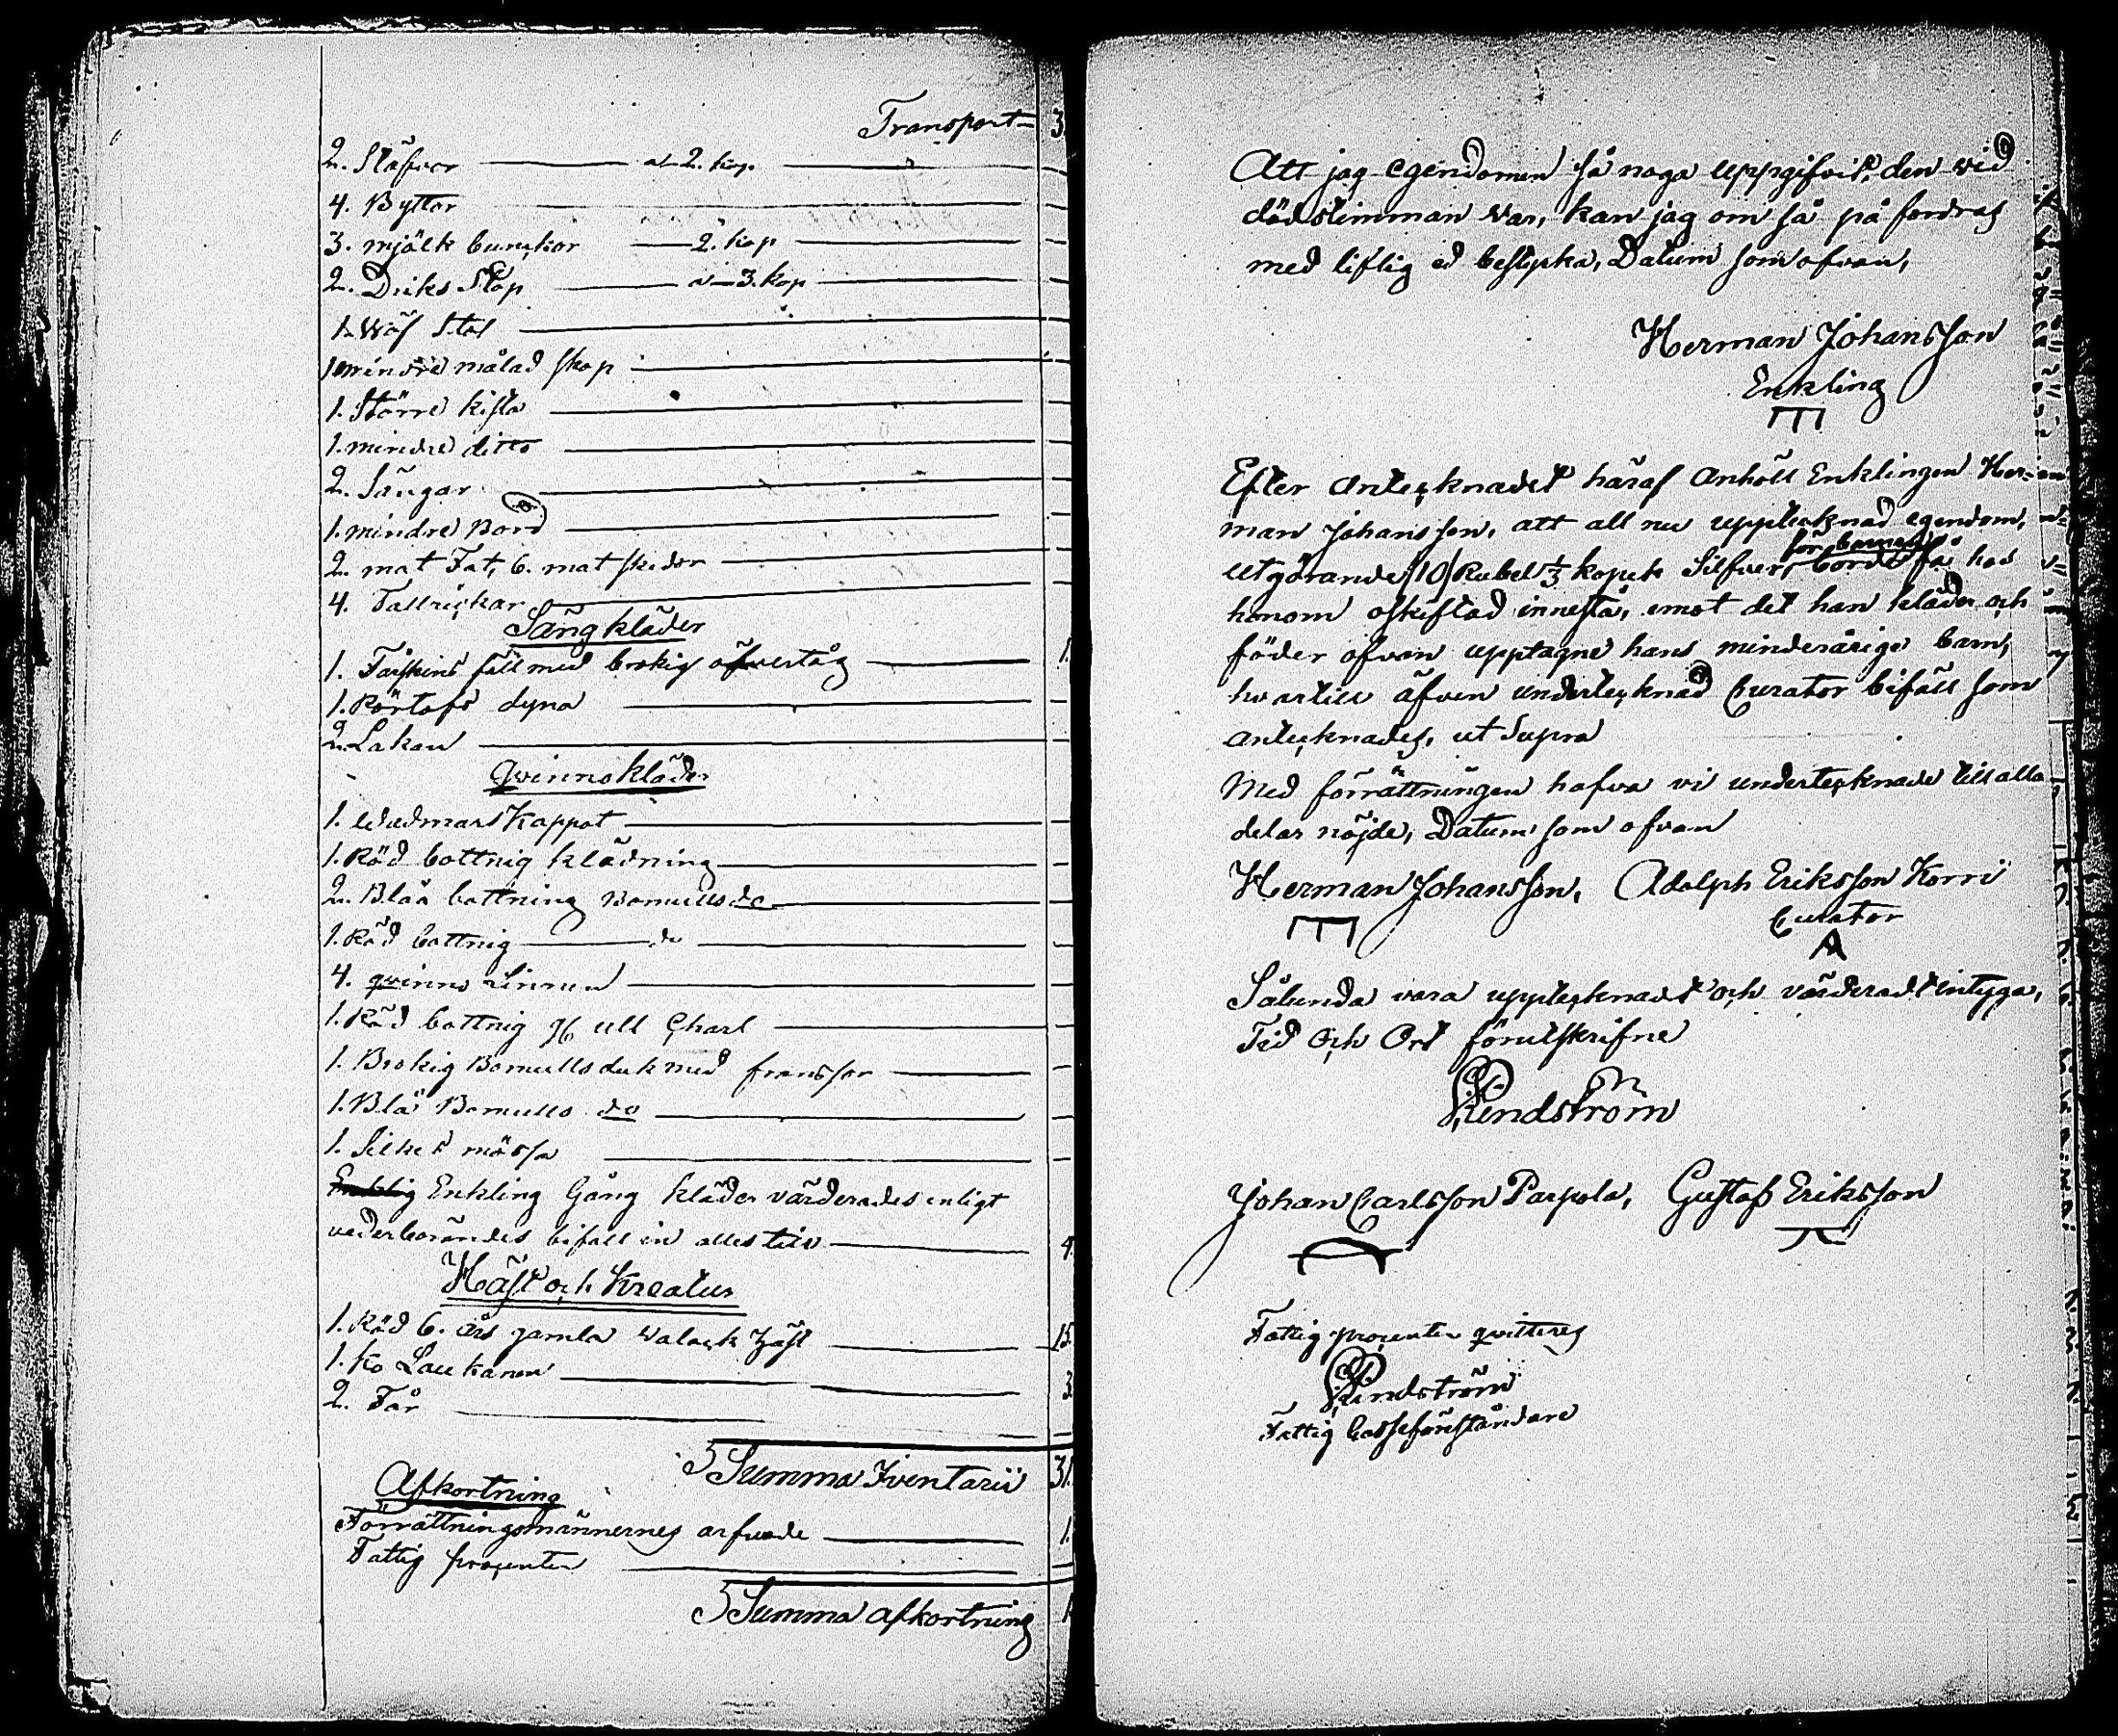 Transport 3
2. Stäfvor a 2. kop.
4. Byttor
3. mjölk bunckor 2. kop
2. Driks Stop a 3. kop
1. Wäf Stol
1 mindre målad skop
1. Större kista
1. mindre ditto
2. Sängar
1. mindre Bord
2. mat Fat, 6. mat skedar
4. Tallrickar
Sängkläder
1. Fårskins fäll med brokig öfvertåg 1.
1. Rörtofs dyna
2. Lakan
Qvinnokläder
1. Wadmars Kappot
1. Röd bottnig klädning
2. Blåa bottning Bomulls do
1. Röd bottnig do
4. qvinno Linnen
1. Röd bottnig ull Charl
1. Brokig Bomullsduk med franssor
1. Blå Bomulls do
1. Silkes mössa
Enkling Gång kläder värderades enligt
vederbörandes bifall in alles till 4
Häst och Kreatur
1. Röd 6. års gamla Walack häst 15
1. Ko Laukanen 3
2. Får
Summa Iventarii 31.
Afkortning
Förrättningsmännernes arfvode 1.
Fattig procenter
Summa afkortning 1
Att jag egendomen så noga uppgifvit, den wid
dödstimman var, kan jag om så på fordras
med liflig ed bestyrka, Datum som ofvan,
Herman Johansson
Enkling
Efter antecknadet häraf anhöll Enklingen Her=
man Johansson, att all nu upptecknad egendom,
utgörande 10 Rubel 1/3 kopek Silfver, för barnen borde få hos
honom oskiftad innestå, emot det han kläder och
föder ofvan upptagne hans minderårige barn,
hvartill äfven undertecknad Curator biföll som
antecknades, ut Supra
Med förrättningen hafva vi undertecknade till alla
delar nöjde, Datum som ofvan
Herman Johansson, Adolph Eriksson Korri
Curator
A
Sålunda vara upptecknadt och värderadt intyga,
Tid och Ort förutskrifne
Johan Carlsson Parpola, Gustaf Eriksson
Fattig procenter qvitteres
Fattig Casseföreståndare